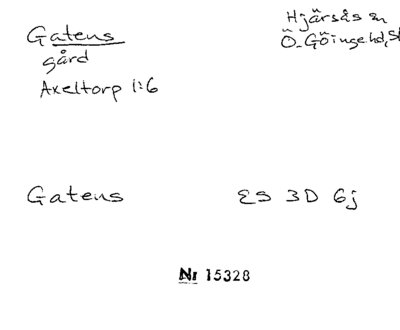 Gatens
gård
Axeltorp 1:6
Hjärsås sn
Ö. Göinge hd, Sk
Gatens
ES 3D 6j
Nr 15328